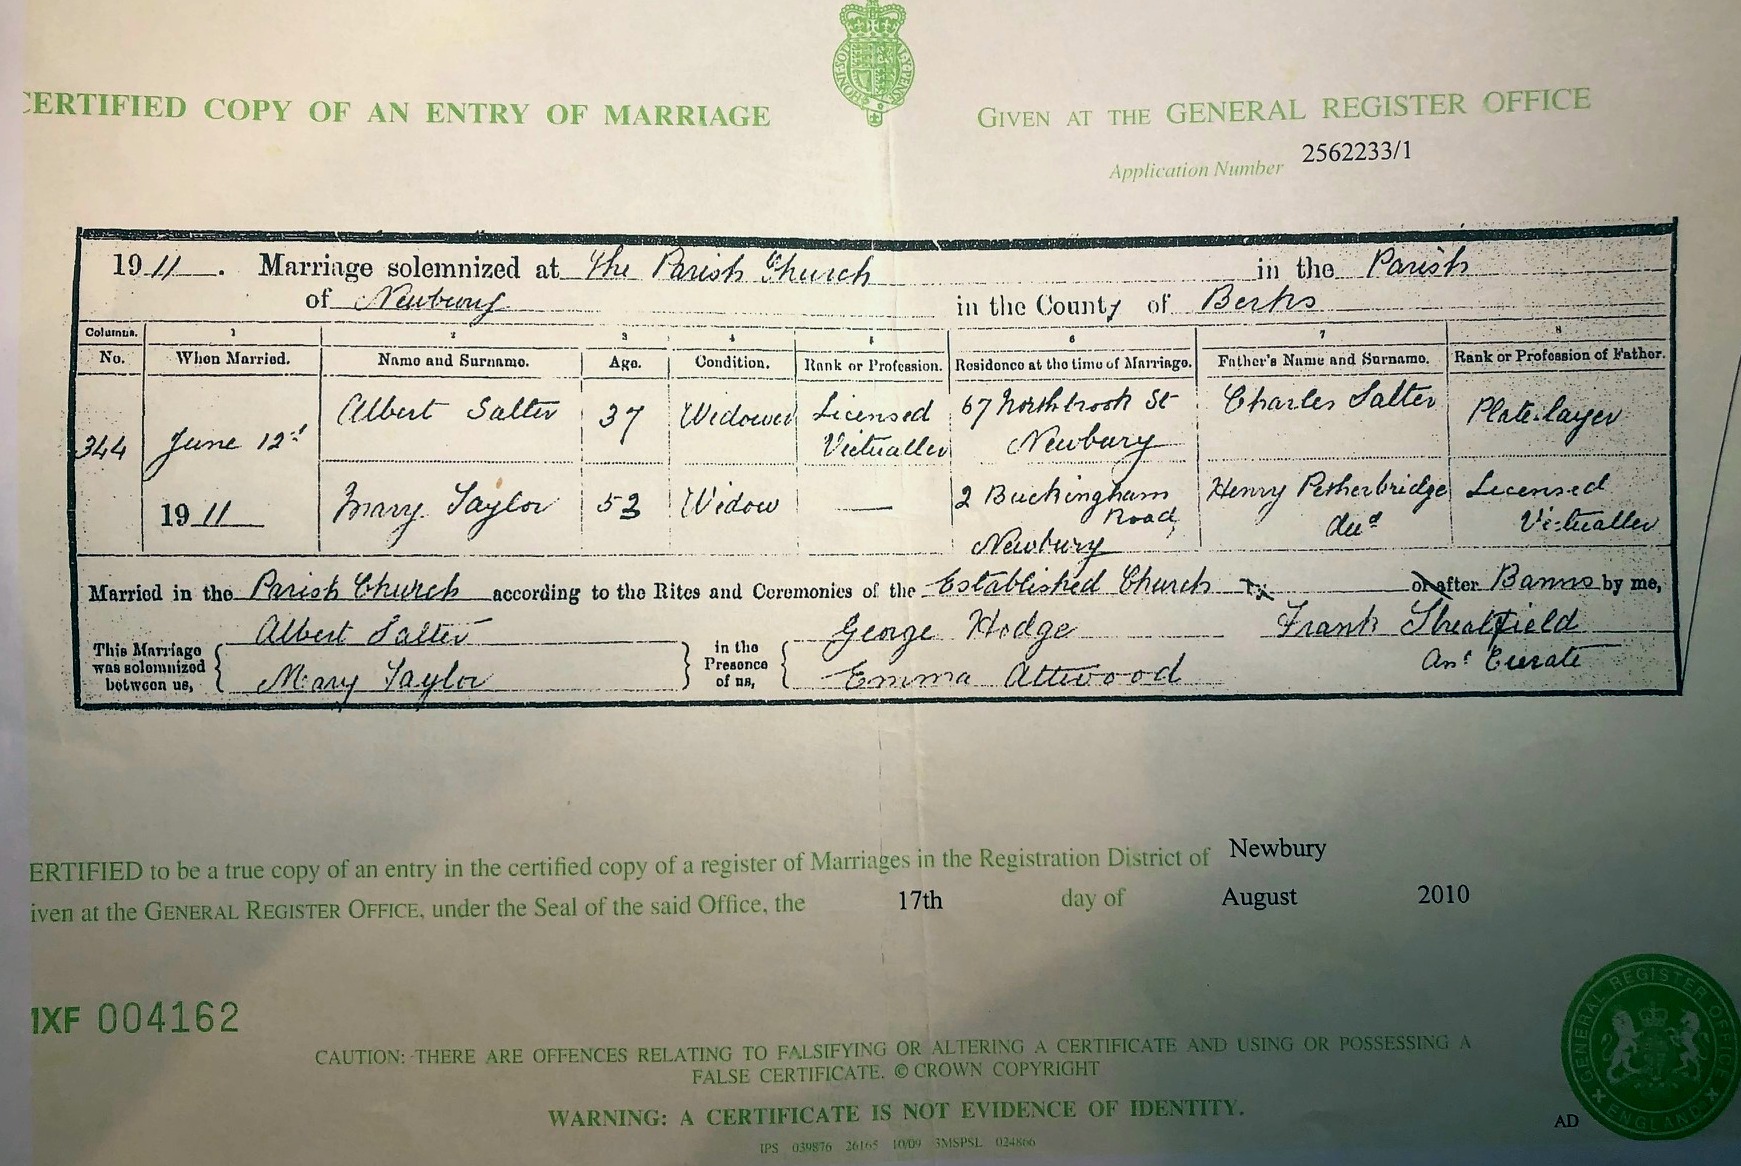 CERTIFIED COPY OF AN ENTRY OF MARRIAGE
GIVEN AT THE GENERAL REGISTER OFFICE
Application Number 2562233/1
1911. Marriage solemnized at The Parish Church in the Parish
of Newbury in the County of Berks
Columns. 1 2 3 4 5 6 7 8
No. When Married. Name and Surname. Age. Condition. Rank or Profession. Residence at the time of Marriage. Father's Name and Surname. Rank or Profession of Father.
344 June 12d 1911
Albert Salter 37 Widower Licensed Victualler 67 Northbrook St Newbury Charles Salter Platelayer
Mary Taylor 53 Widow — 2 Buckingham Road, Newbury Henry Petherbridge decd Licensed Victualler
Married in the Parish Church according to the Rites and Ceremonies of the Established Church by or after Banns by me,
This Marriage was solemnized between us,
Albert Salter
Mary Taylor
in the Presence of us,
George Hodge
Emma Attwood
Frank Streatfield
Asst Curate
ERTIFIED to be a true copy of an entry in the certified copy of a register of Marriages in the Registration District of Newbury
iven at the GENERAL REGISTER OFFICE, under the Seal of the said Office, the 17th day of August 2010
MXF 004162
CAUTION: THERE ARE OFFENCES RELATING TO FALSIFYING OR ALTERING A CERTIFICATE AND USING OR POSSESSING A
FALSE CERTIFICATE. © CROWN COPYRIGHT
WARNING: A CERTIFICATE IS NOT EVIDENCE OF IDENTITY.
IPS 039876 26165 10/09 3MSPSL 024866
GENERAL REGISTER OFFICE
ENGLAND
AD